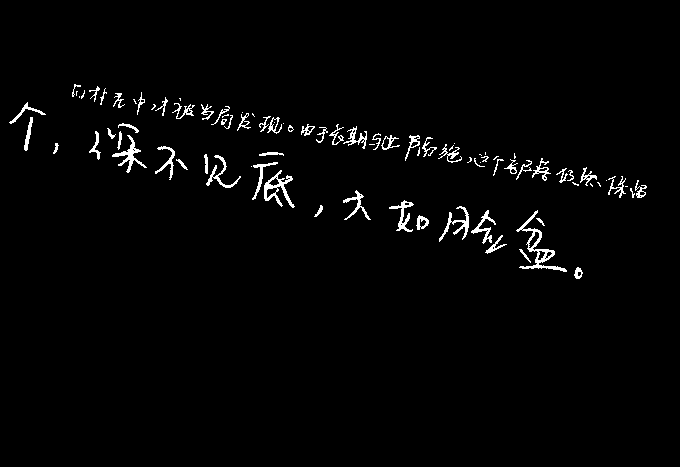 的村落中,才被当局发现。由于长期与世隔绝,这个部落依然保留
个,深不见底,大如脸盆。